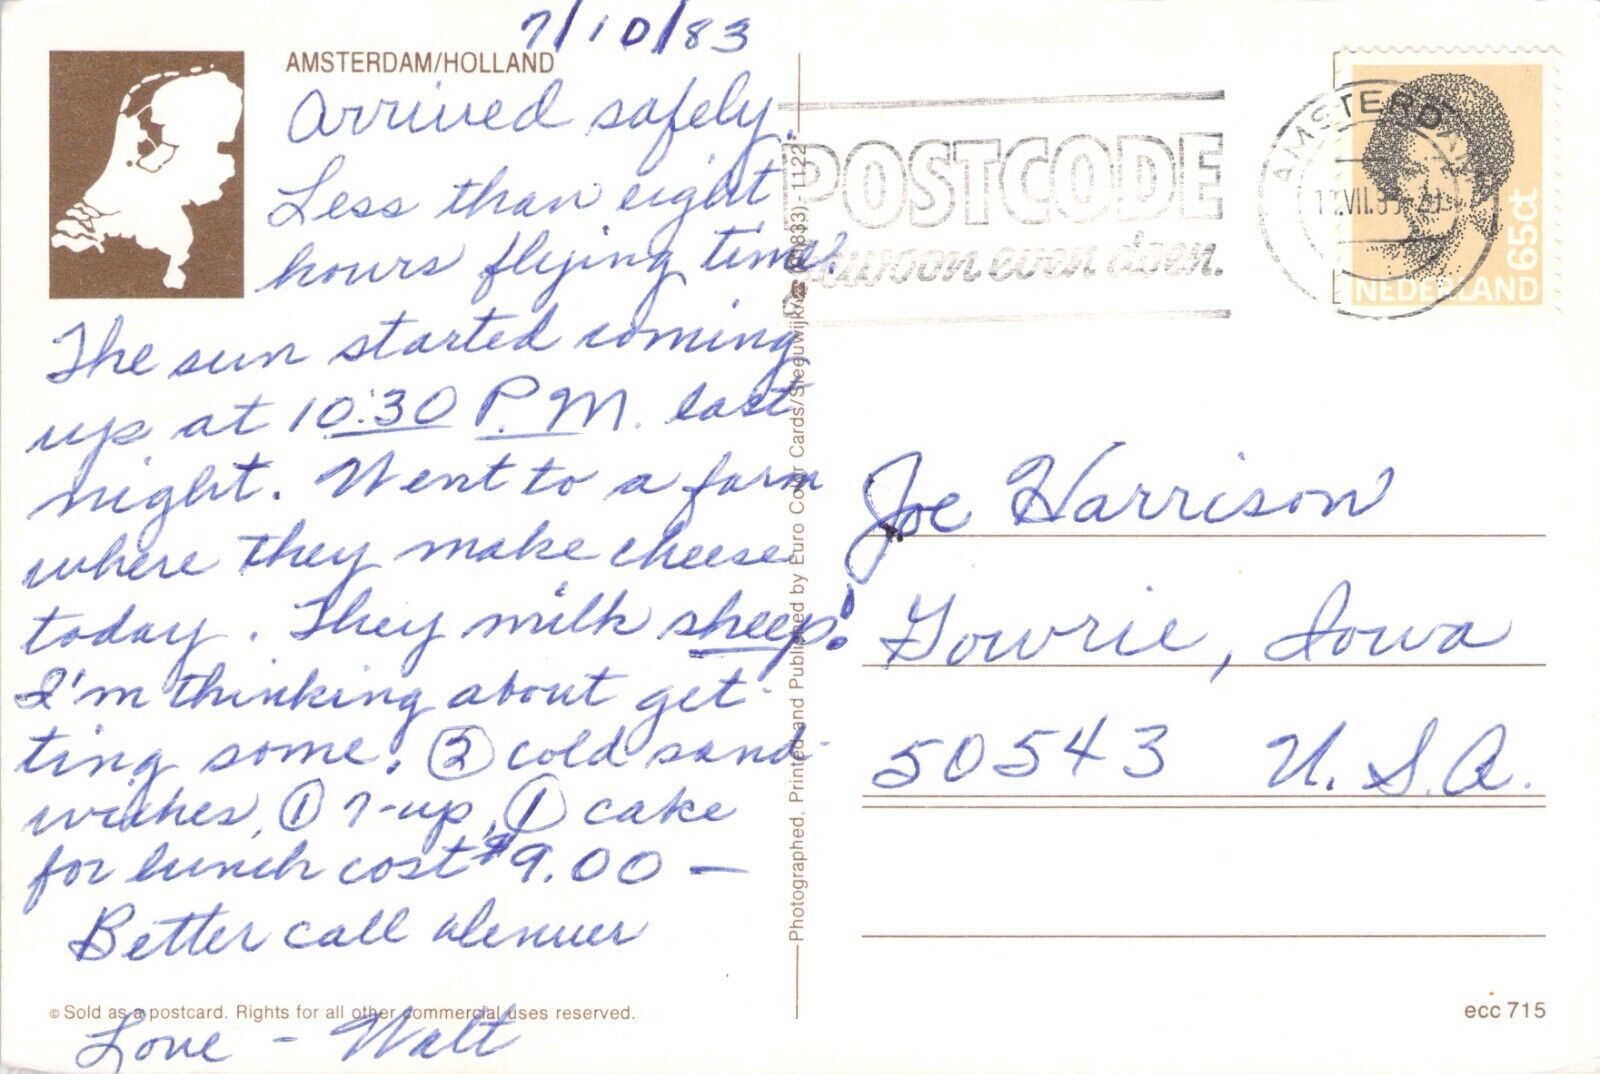 7/10/83
AMSTERDAM/HOLLAND
Arrived safely.
Less than eight
hours flying time.
The sun started coming
up at 10:30 P.M. last
night. Went to a farm
where they make cheese
today. They milk sheep!
I'm thinking about get-
ting some. ② cold sand-
wiches, ① 7-up, ① cake
for lunch cost $9.00 —
Better call
Love - Walt
© Sold as a postcard. Rights for all other commercial uses reserved.
Photographed, Printed and Published by Euro Color Cards/Sleeuwijk/
POSTCODE
woon even doen.
AMSTERDAM
VII.8
NEDERLAND 65ct
Joe Harrison
Gowrie, Iowa
50543 U.S.A.
ecc 715